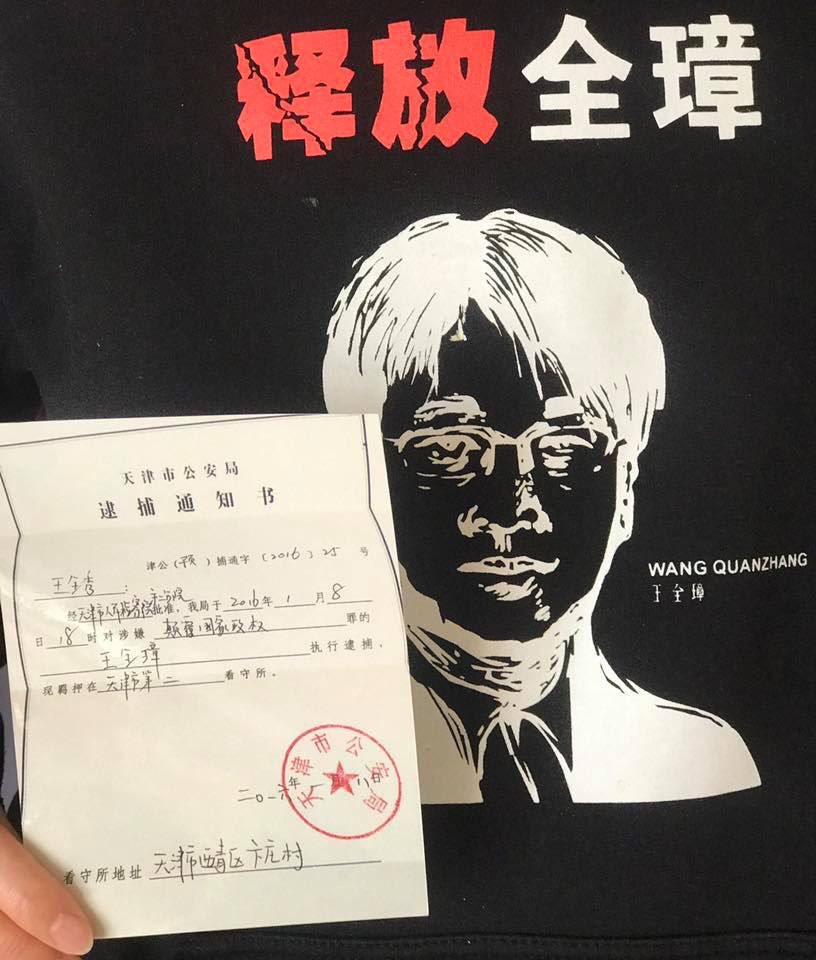 释放全璋
WANG QUANZHANG
王全璋
天津市公安局
逮捕通知书
津公(预)捕通字〔2016〕25号
王全秀:
经天津市人民检察院第二分院批准,我局于2016年1月8
日18时对涉嫌颠覆国家政权罪的
王全璋执行逮捕,
现羁押在天津市第二看守所。
天津市公安局
二〇一六年一月八日
看守所地址天津市西青区